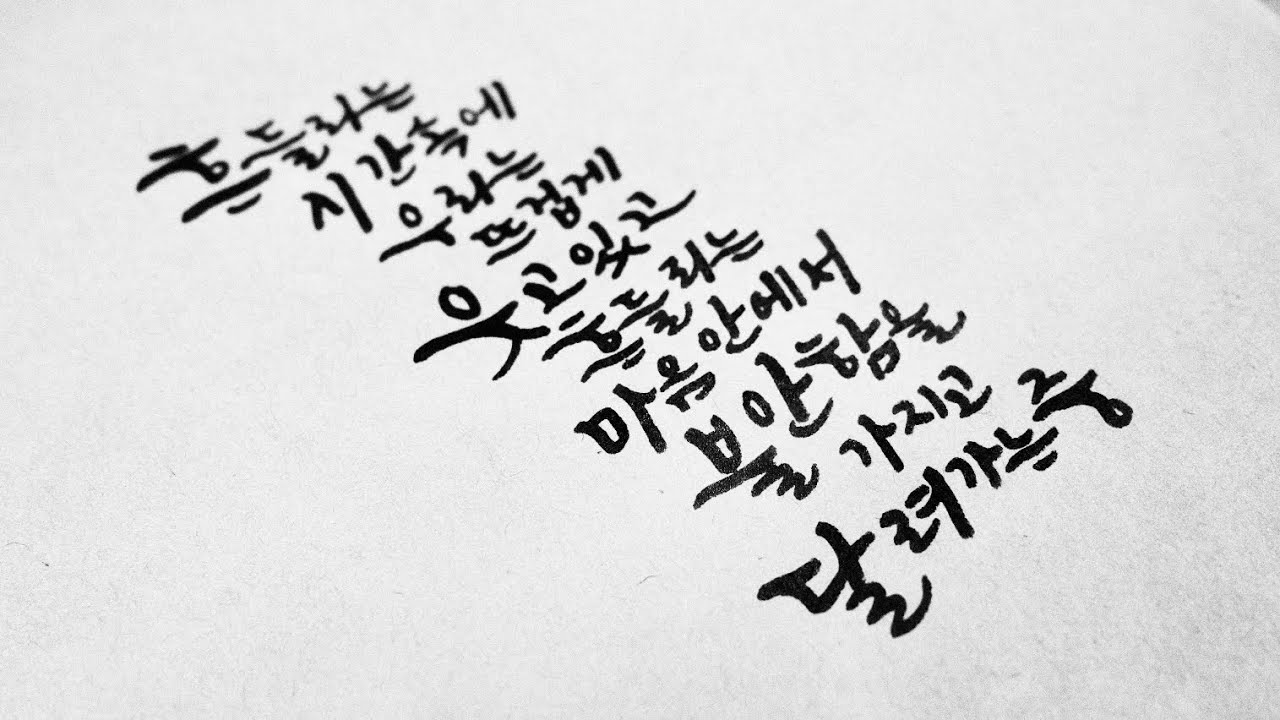 흔들리는
시간속에
우리는
뜨겁게
웃고있고
흔들리는
마음안에서
불안함을
가지고
달려가는중